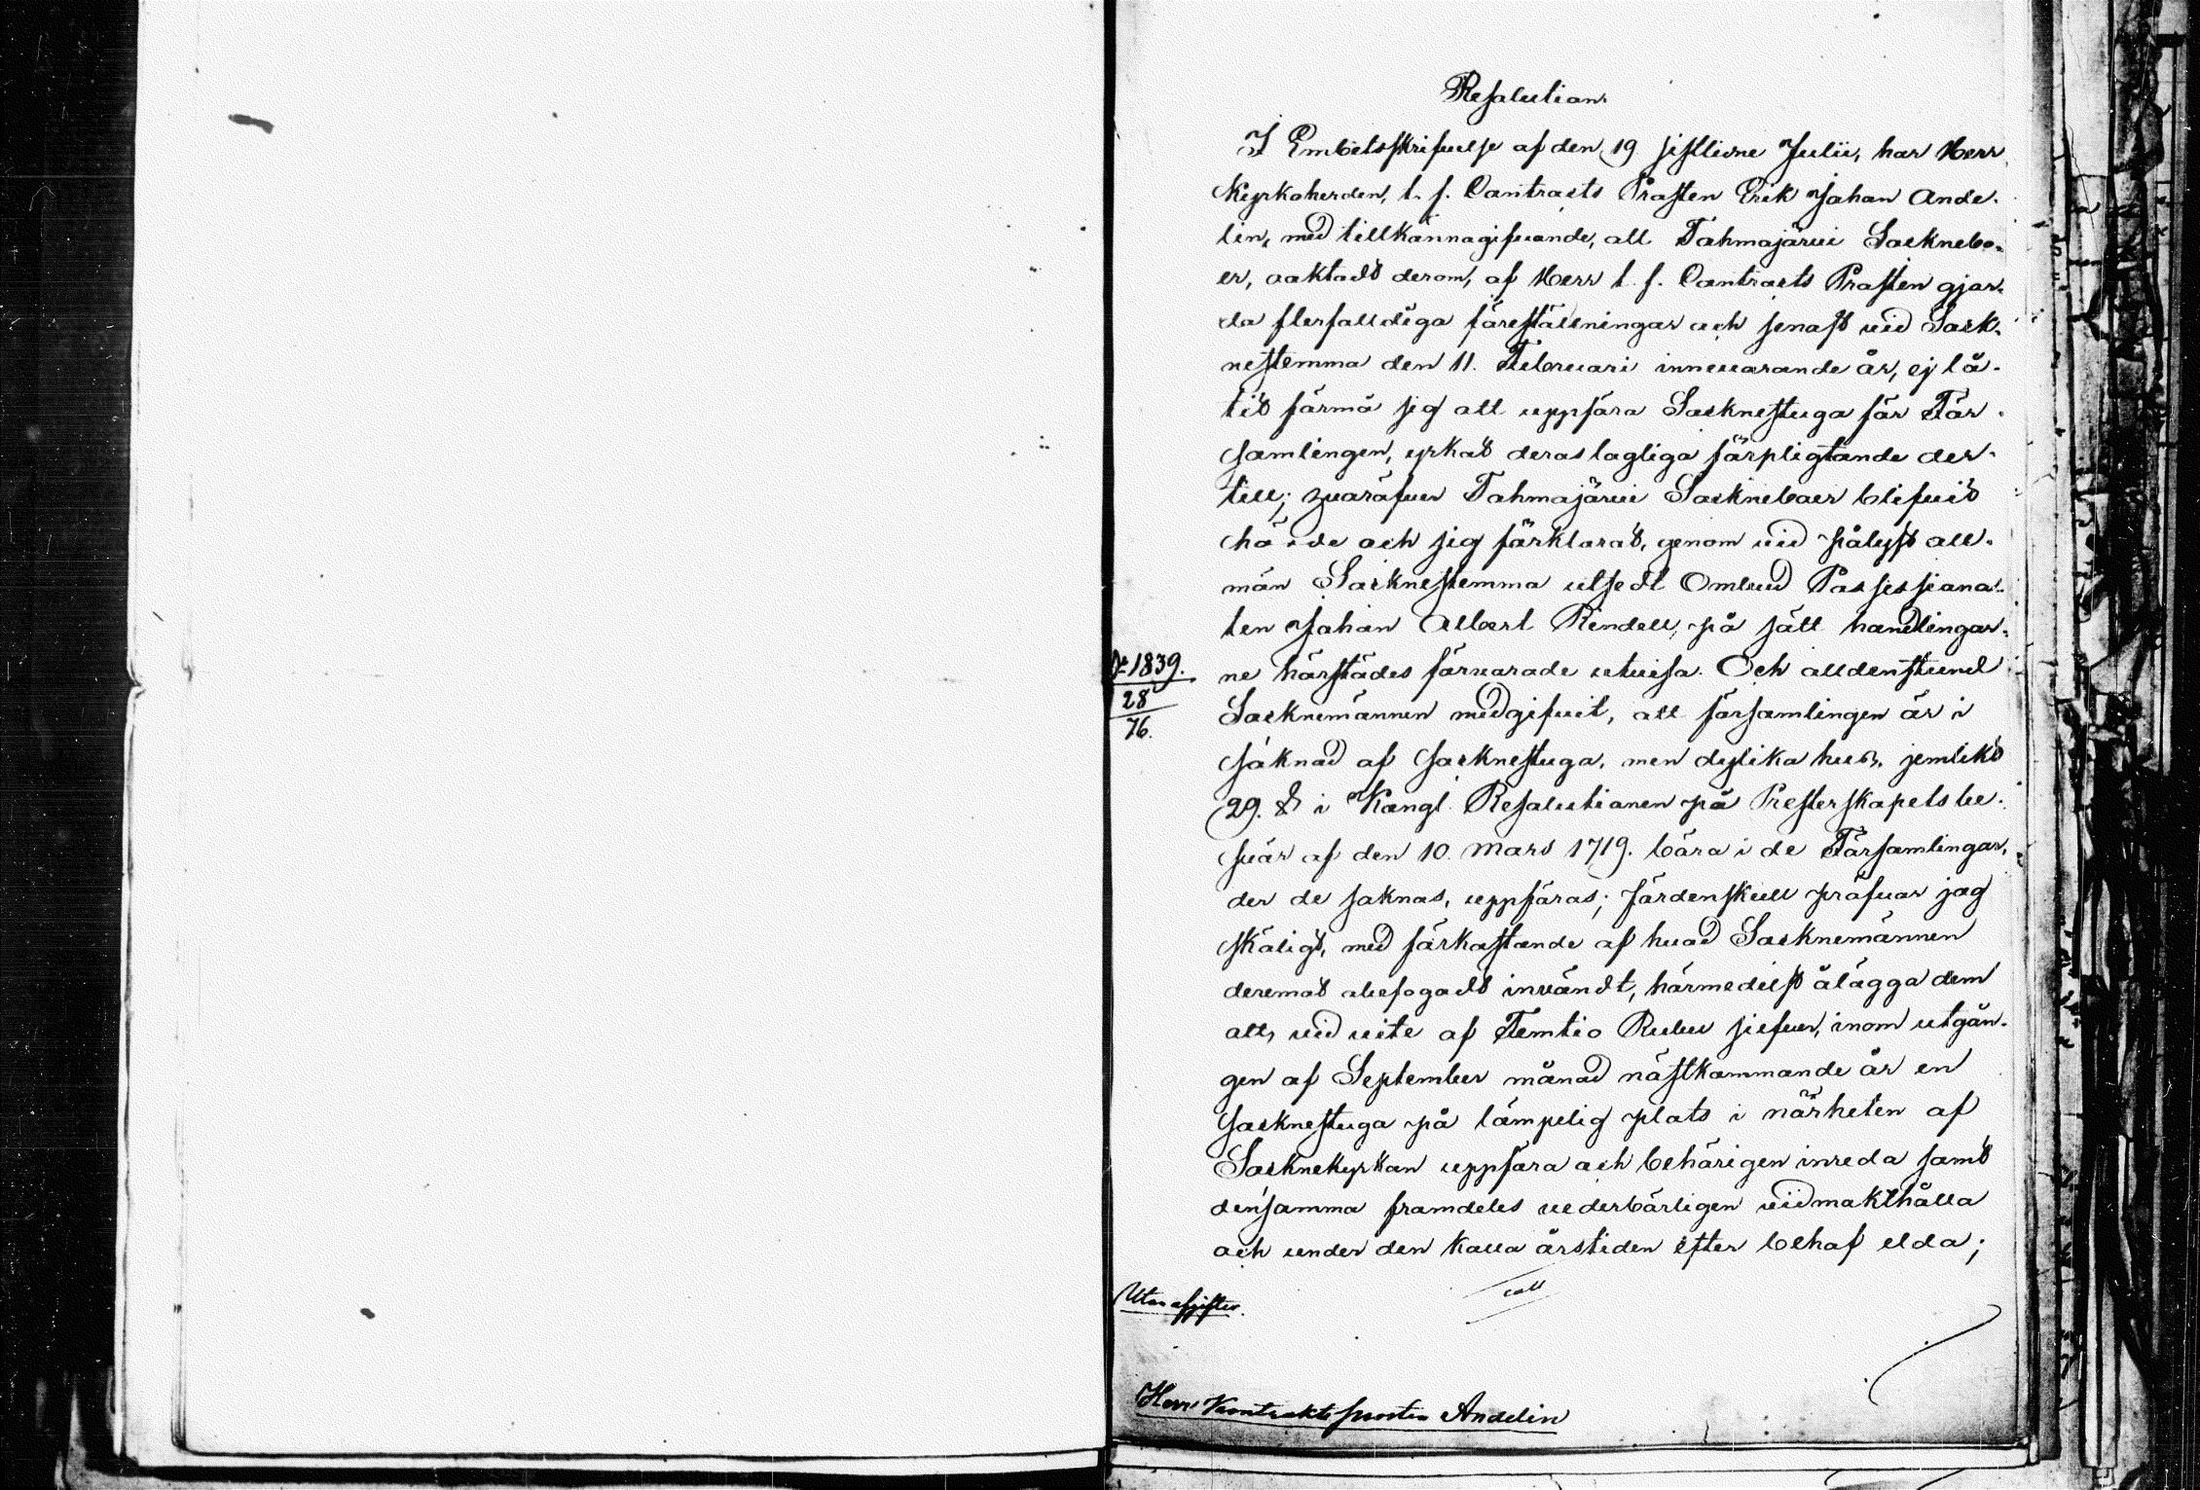 Resolution
I Embetsskrifvelse af den 19 sistlidne Julii, har Herr
Kyrkoherden, t. f. Contracts Prosten Erik Johan Ande-
lin, med tillkännagifvande, att Tohmajärvi Socknebo-
er, oaktadt derom, af Herr t. f. Contracts Prosten gjor-
da flerfalldiga föreställningar och senast vid Sock-
nestemma den 11. Februari innevarande år, ej lå-
tit förmå sig att uppföra Socknestuga för För-
samlingen, yrkat deras lagliga förpligtande der-
till; hvaröfver Tohmajärvi Sockneboer blifvit
hörde och sig förklarat, genom vid pålyst all-
män Socknestemma utsedt Ombud Possessiona-
ten Johan Albert Rindell, på sätt handlingar-
ne härstädes förvarade utvisa. Och alldenstund
Socknemännen medgifvit, att församlingen är i
saknad af Socknestuga, men dylika hus, jemlikt
29. § i Kongl. Resolutionen på Presterskapets be-
svär af den 10. Mars 1719. böra i de Församlingar,
der de saknas, uppföras; fördenskull pröfvar jag
skäligt, med förkastande af hvad Socknemännen
deremot obefogadt invändt, härmedelst ålägga dem
att, vid vite af Femtio Rubel silfver, inom utgån-
gen af September månad nästkommande år en
Socknestuga på lämpelig plats i närheten af
Socknekyrkan uppföra och behörigen inreda samt
densamma framdeles vederbörligen vidmakthålla
och under den kalla årstiden efter behof elda;
att
No 1839.
28
76.
Utan afgifter.
Herr Kontraktsprosten Andelin